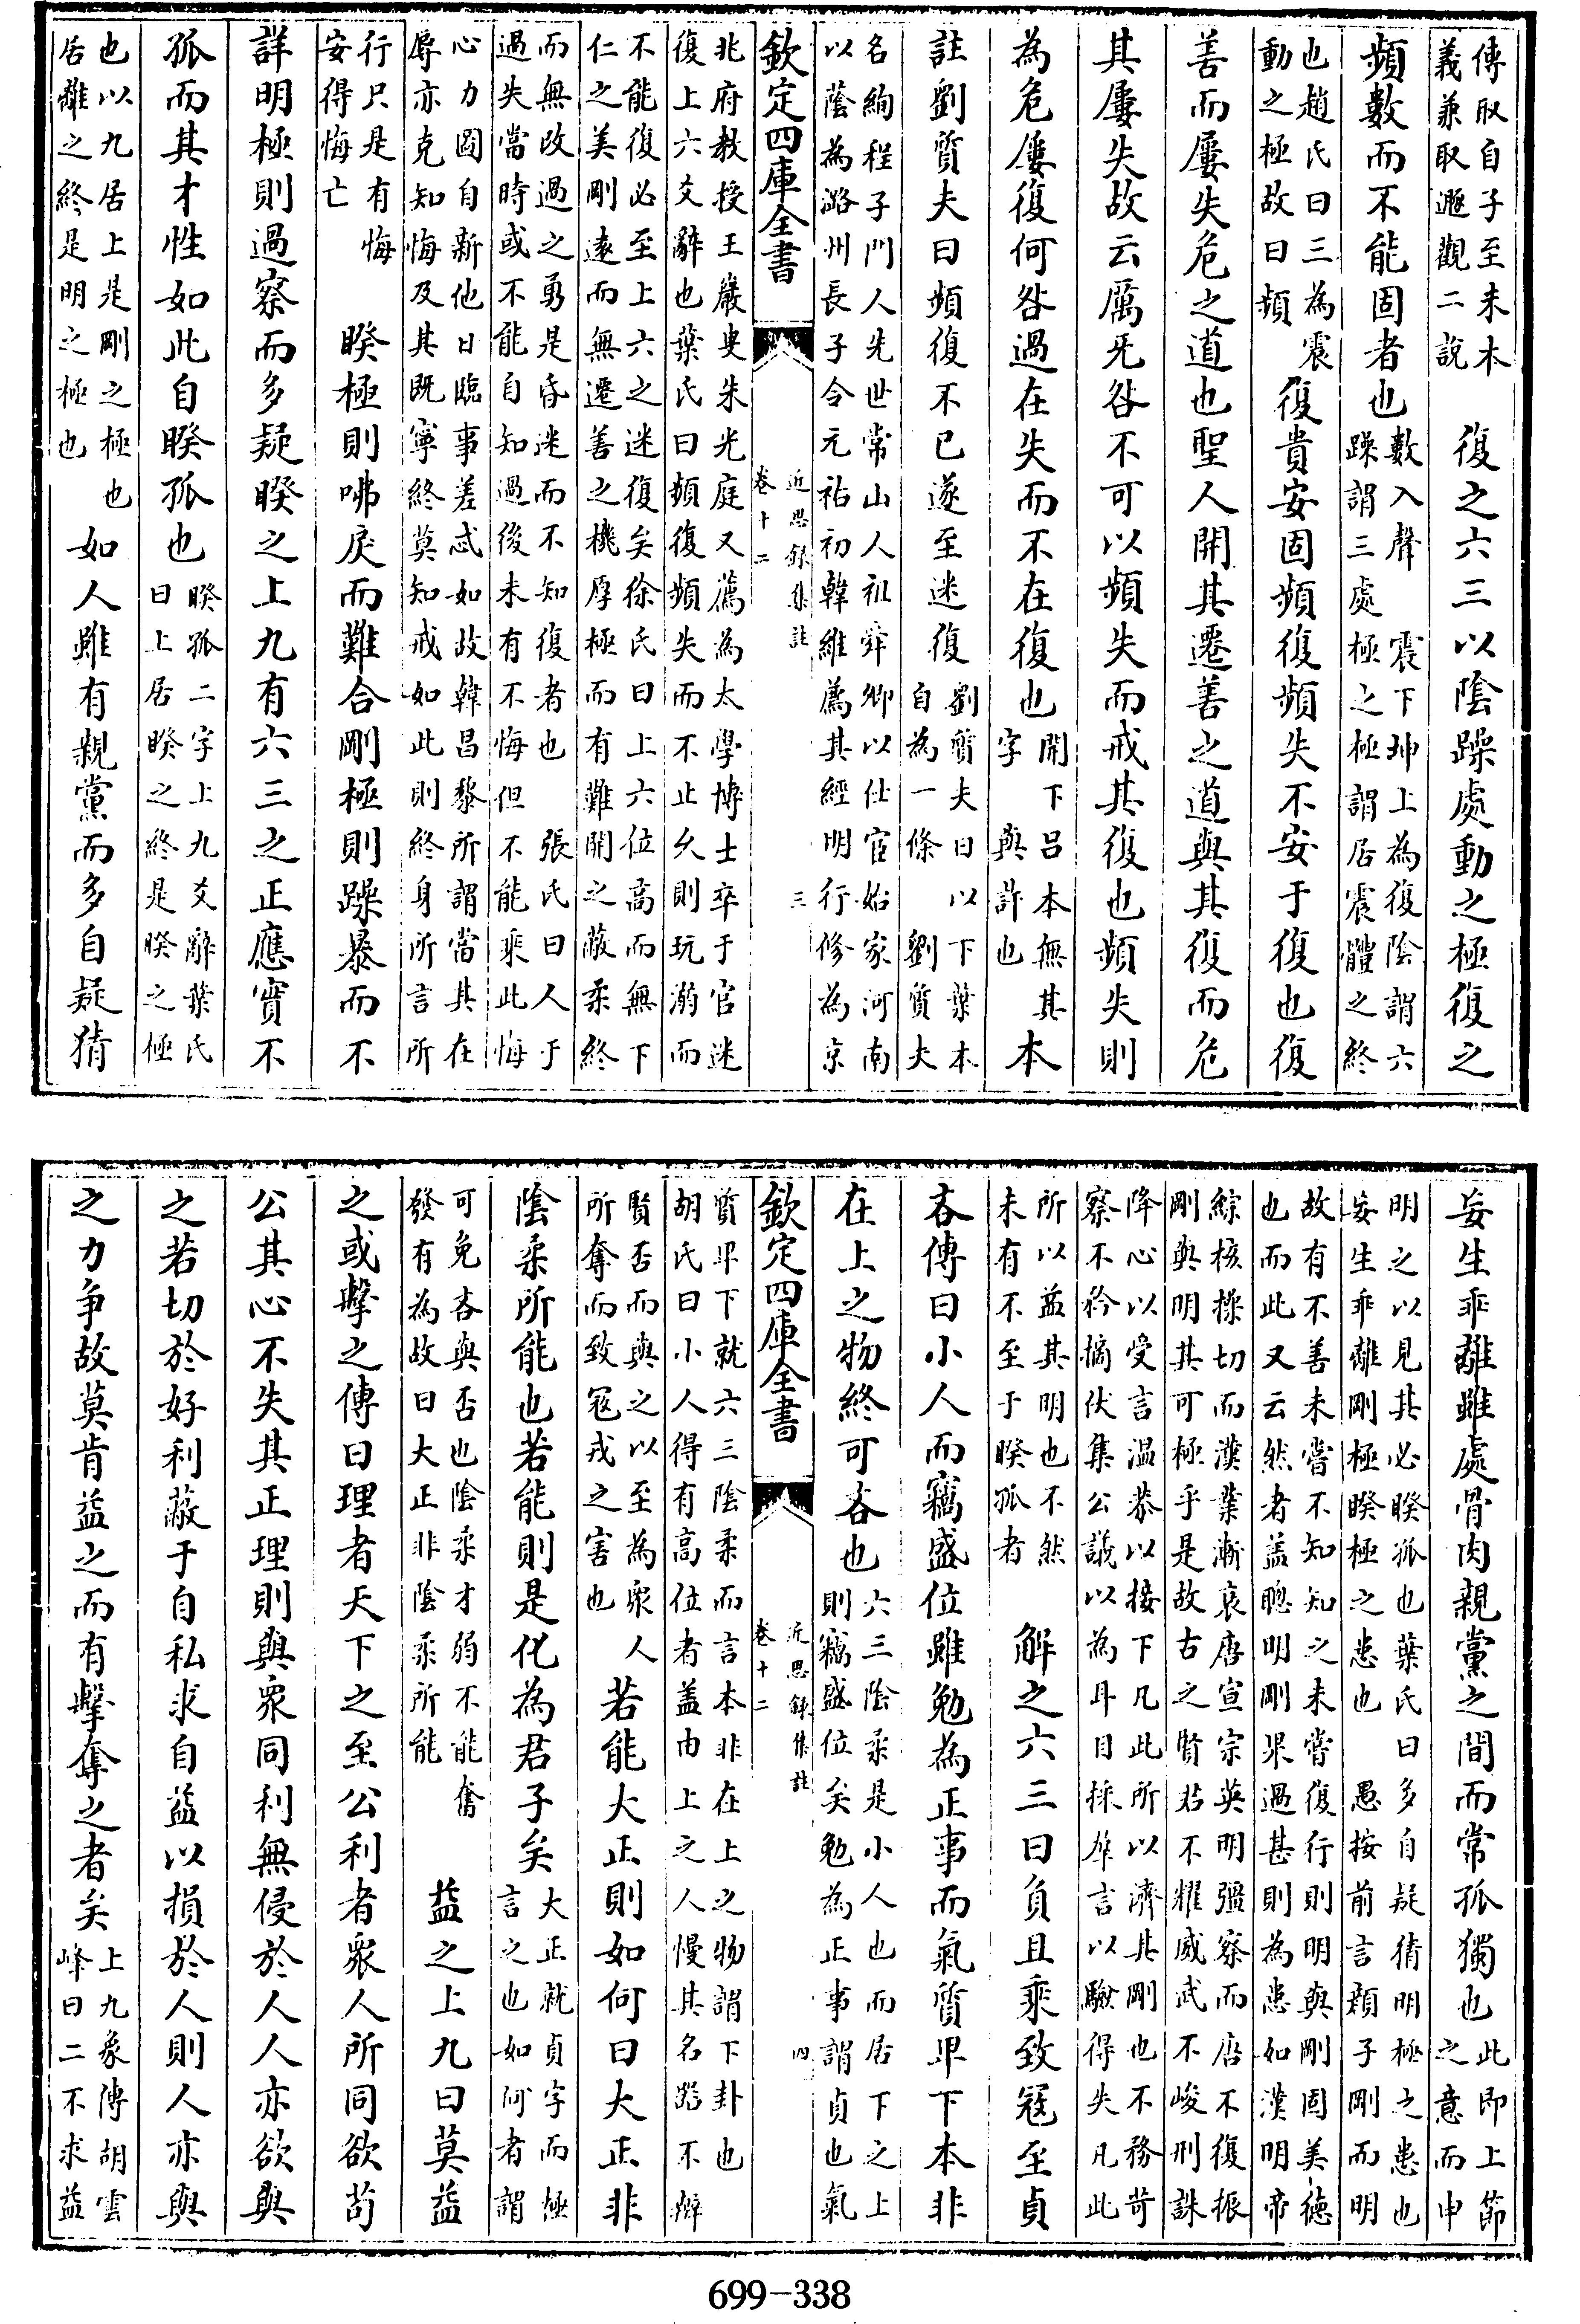 傳取自子至未本義兼取遯觀二說復之六三以陰躁處動之極復之
頻數而不能固者也數入聲 震下坤上為復陰謂六躁謂三處極之極謂居震體之終
也趙氏曰三為震動之極故曰頻復貴安固頻復頻失不安于復也復
善而屢失危之道也聖人開其遷善之道與其復而危
其屢失故云厲无咎不可以頻失而戒其復也頻失則
為危屢復何咎過在失而不在復也開下呂本無其字 與許也本
註劉質夫曰頻復不已遂至迷復劉質夫曰以下葉本自為一條 劉質夫
名絢程子門人先世常山人祖舜卿以仕宦始家河南以蔭為潞州長子令元祐初韓維薦其經明行修為京
欽定四庫全書 近思録集註 卷十二 三
兆府教授王巖叟朱光庭又薦為太學博士卒于官迷復上六爻辭也葉氏曰頻復頻失而不止久則玩溺而
不能復必至上六之迷復矣徐氏曰上六位高而無下仁之美剛遠而無遷善之機厚極而有難開之蔽柔終
而無改過之勇是昏迷而不知復者也 張氏曰人于過失當時或不能自知過後未有不悔但不能乘此悔
心力圖自新他日臨事差忒如故韓昌黎所謂當其在辱亦克知悔及其既寧終莫知戒如此則終身所言所
行只是有悔安得悔亡 睽極則咈戾而難合剛極則躁暴而不
詳明極則過察而多疑睽之上九有六三之正應實不
孤而其才性如此自睽孤也睽孤二字上九爻辭葉氏曰上居睽之終是睽之極
也以九居上是剛之極也居離之終是明之極也如人雖有親黨而多自疑猜
妄生乖離雖處骨肉親黨之間而常孤獨也此即上節之意而申
明之以見其必睽孤也葉氏曰多自疑猜明極之患也妄生乖離剛極睽極之患也 愚按前言顏子剛而明
故有不善未嘗不知知之未嘗復行則明與剛固美德也而此又云然者蓋聰明剛果過甚則為患如漢明帝
綜核操切而漢業漸衰唐宣宗英明彊察而唐不復振剛與明其可極乎是故古之賢君不耀威武不峻刑誅
降心以受言温恭以接下凡此所以濟其剛也不務苛察不矜摘伏集公議以為耳目採羣言以驗得失凡此
所以益其明也不然未有不至于睽孤者 解之六三曰負且乘致冦至貞
吝傳曰小人而竊盛位雖勉為正事而氣質卑下本非
在上之物終可吝也六三陰柔是小人也而居下之上則竊盛位矣勉為正事謂貞也氣
欽定四庫全書 近思録集註 卷十二 四
質卑下就六三陰柔而言本非在上之物謂下卦也胡氏曰小人得有高位者蓋由上之人慢其名器不辯
賢否而與之以至為衆人所奪而致冦戎之害也若能大正則如何曰大正非
陰柔所能也若能則是化為君子矣大正就貞字而極言之也如何者謂
可免吝與否也陰柔才弱不能奮發有為故曰大正非陰柔所能 益之上九曰莫益
之或擊之傳曰理者天下之至公利者衆人所同欲苟
公其心不失其正理則與衆同利無侵於人人亦欲與
之若切於好利蔽于自私求自益以損於人則人亦與
之力爭故莫肯益之而有擊奪之者矣上九象傳胡雲峰曰二不求益
699-338